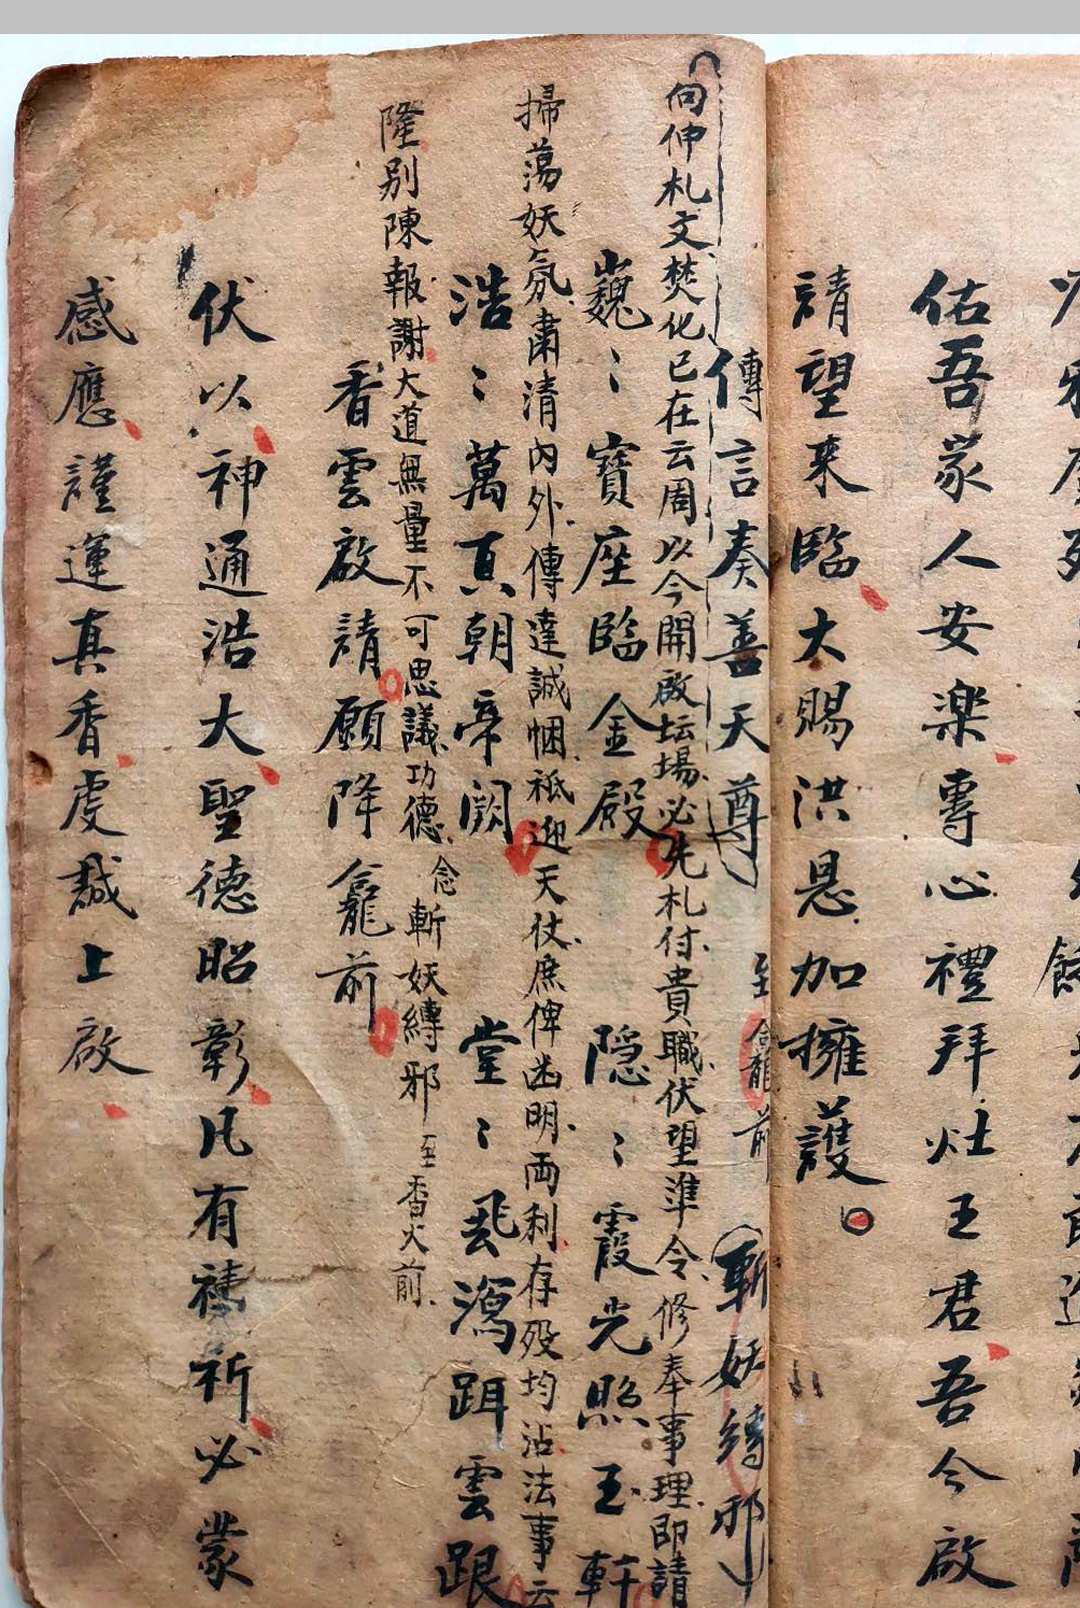 佑吾家人安楽專心禮拜灶王君吾今啟
請望来臨大賜洪恩加擁護
傳言奏善天尊 至龕前 斬妖縛邪
向伸札文焚化已在云周以今開啟坛場必先札付貴職伏望準令修奉事理即請
巍〻寶座臨金殿 隠〻霞光照玉軒
掃蕩妖氛肅清內外傳達誠悃祗迎天仗庶俾幽明両利存殁均沾法事云
浩〻萬真朝帝闕 堂〻飛瀉躡雲跟
隆别陳報謝大道無量不可思議功德 念斬妖縛邪 至香火前
香雲啟請願降龕前
伏以神通浩大聖德昭彰凡有禱祈必蒙
感應謹運真香虔誠上啟